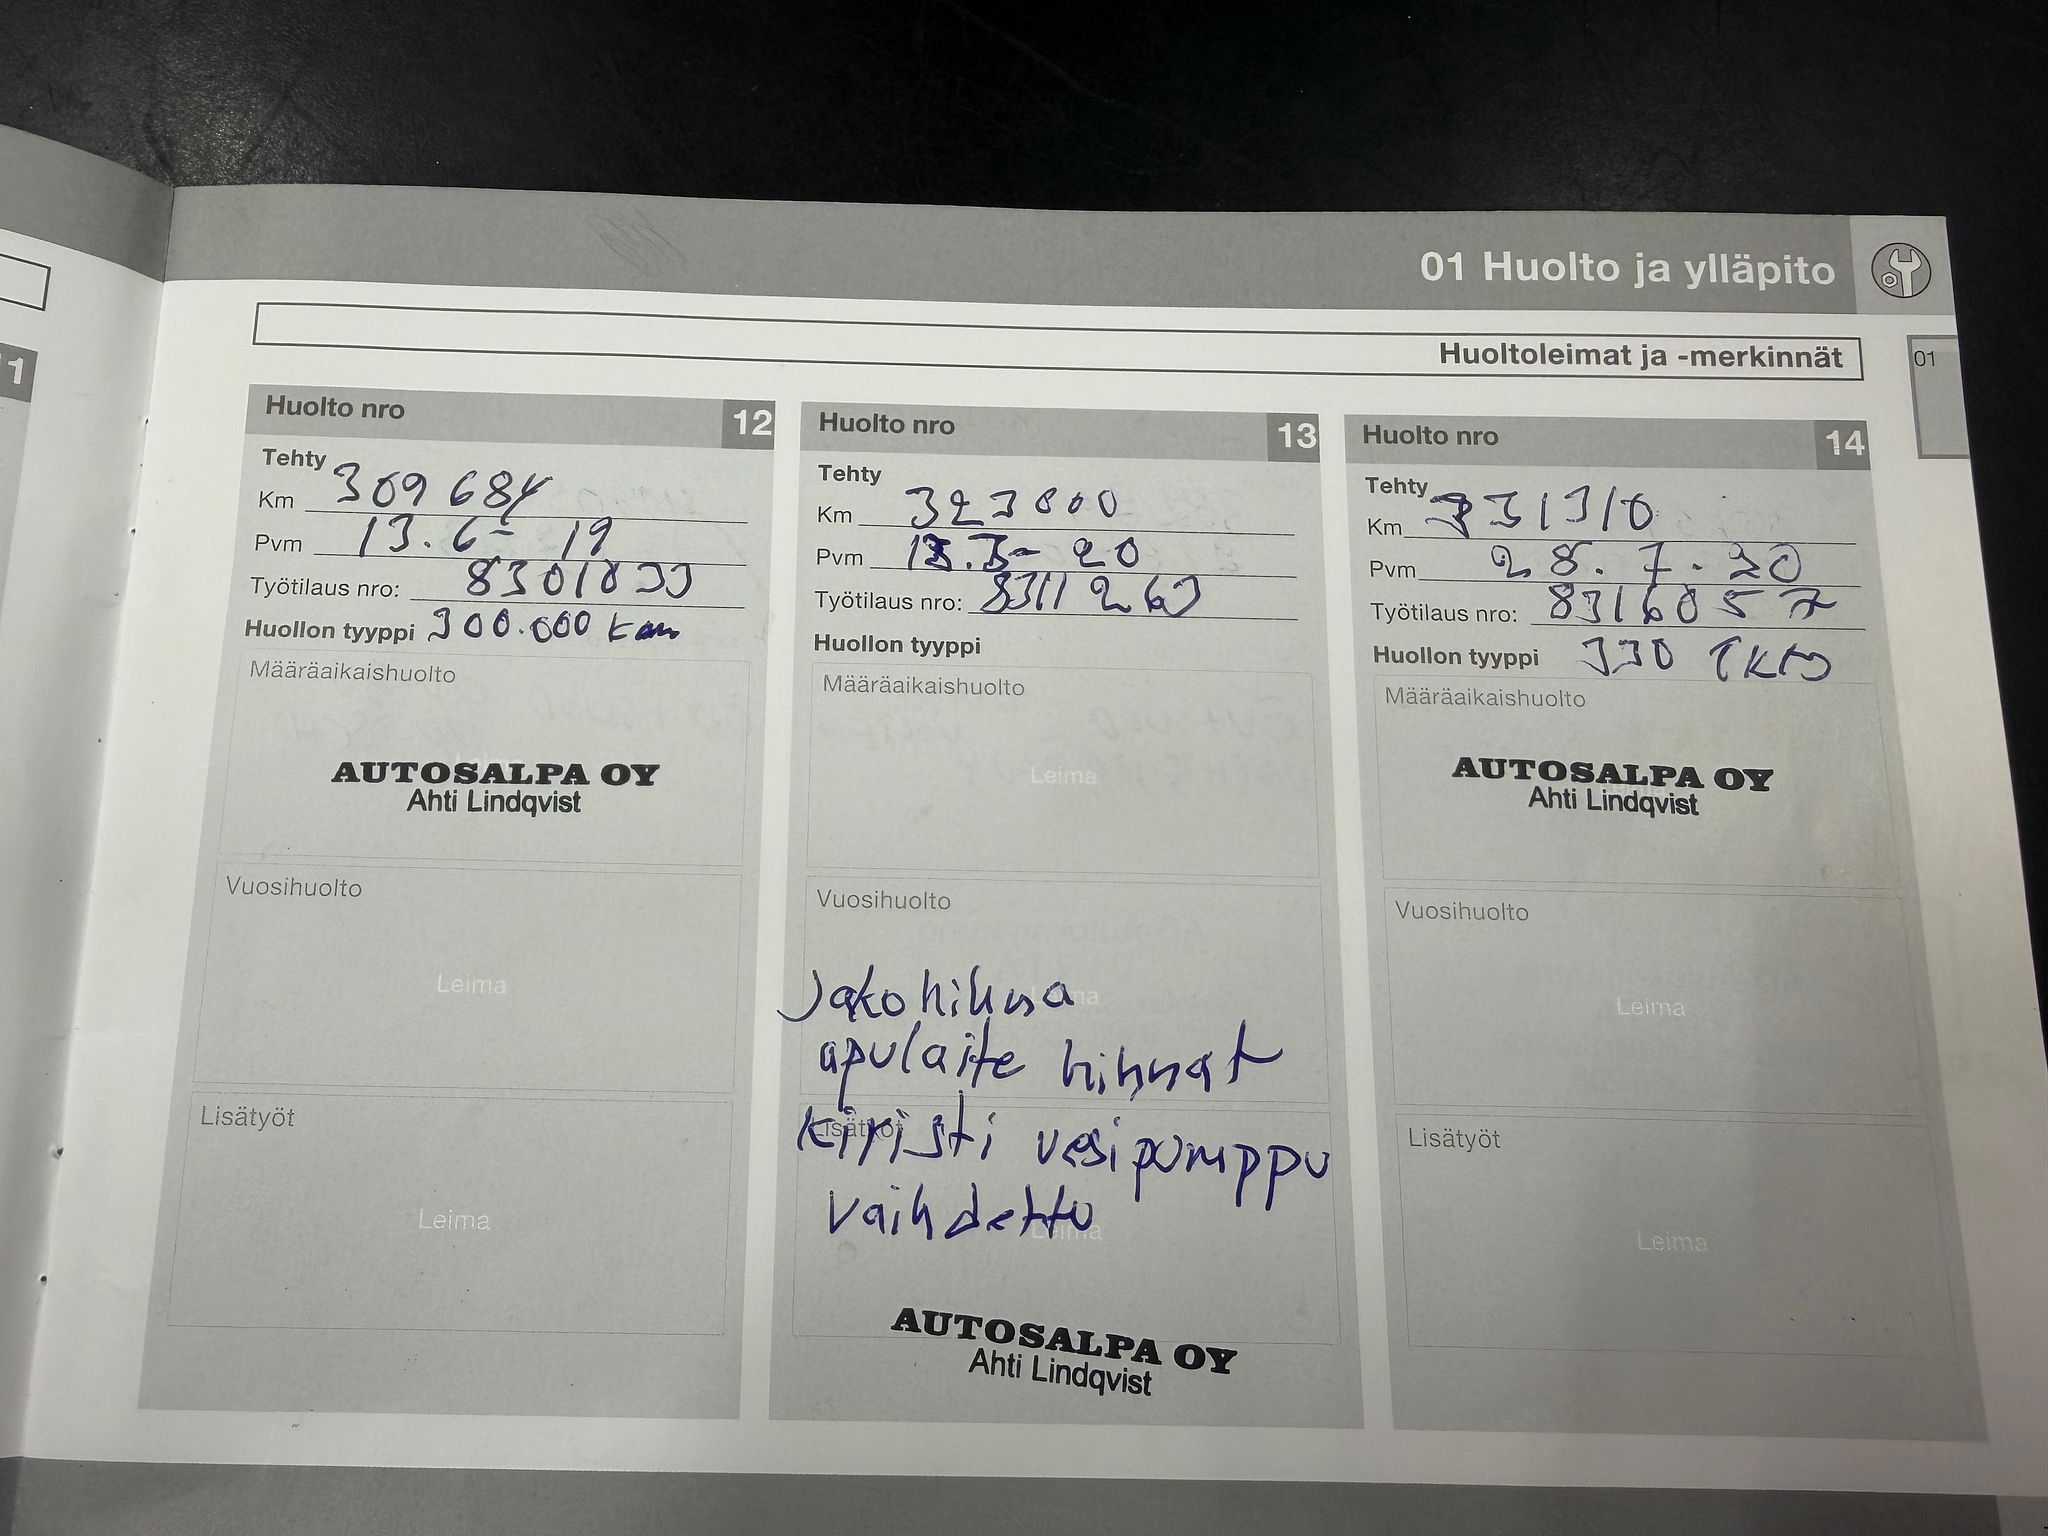 01 Huolto ja ylläpito
Huoltoleimat ja -merkinnät
01
1
Huolto nro 12
Tehty
Km 309 684
Pvm 13.6- 19
Työtilaus nro: 8301033
Huollon tyyppi 300.000 km
Määräaikaishuolto
AUTOSALPA OY
Ahti Lindqvist
Vuosihuolto
Leima
Lisätyöt
Leima
Huolto nro 13
Tehty
Km 323000
Pvm 20
Työtilaus nro: 8311263
Huollon tyyppi
Määräaikaishuolto
Leima
Vuosihuolto
Jakohihna
apulaite hihnat
Lisätyöt
kiristi vesipumppu
vaihdettu
Leima
AUTOSALPA OY
Ahti Lindqvist
Huolto nro 14
Tehty
Km 331310
Pvm 28.7.20
Työtilaus nro: 8316057
Huollon tyyppi 330 TKM
Määräaikaishuolto
AUTOSALPA OY
Ahti Lindqvist
Vuosihuolto
Leima
Lisätyöt
Leima